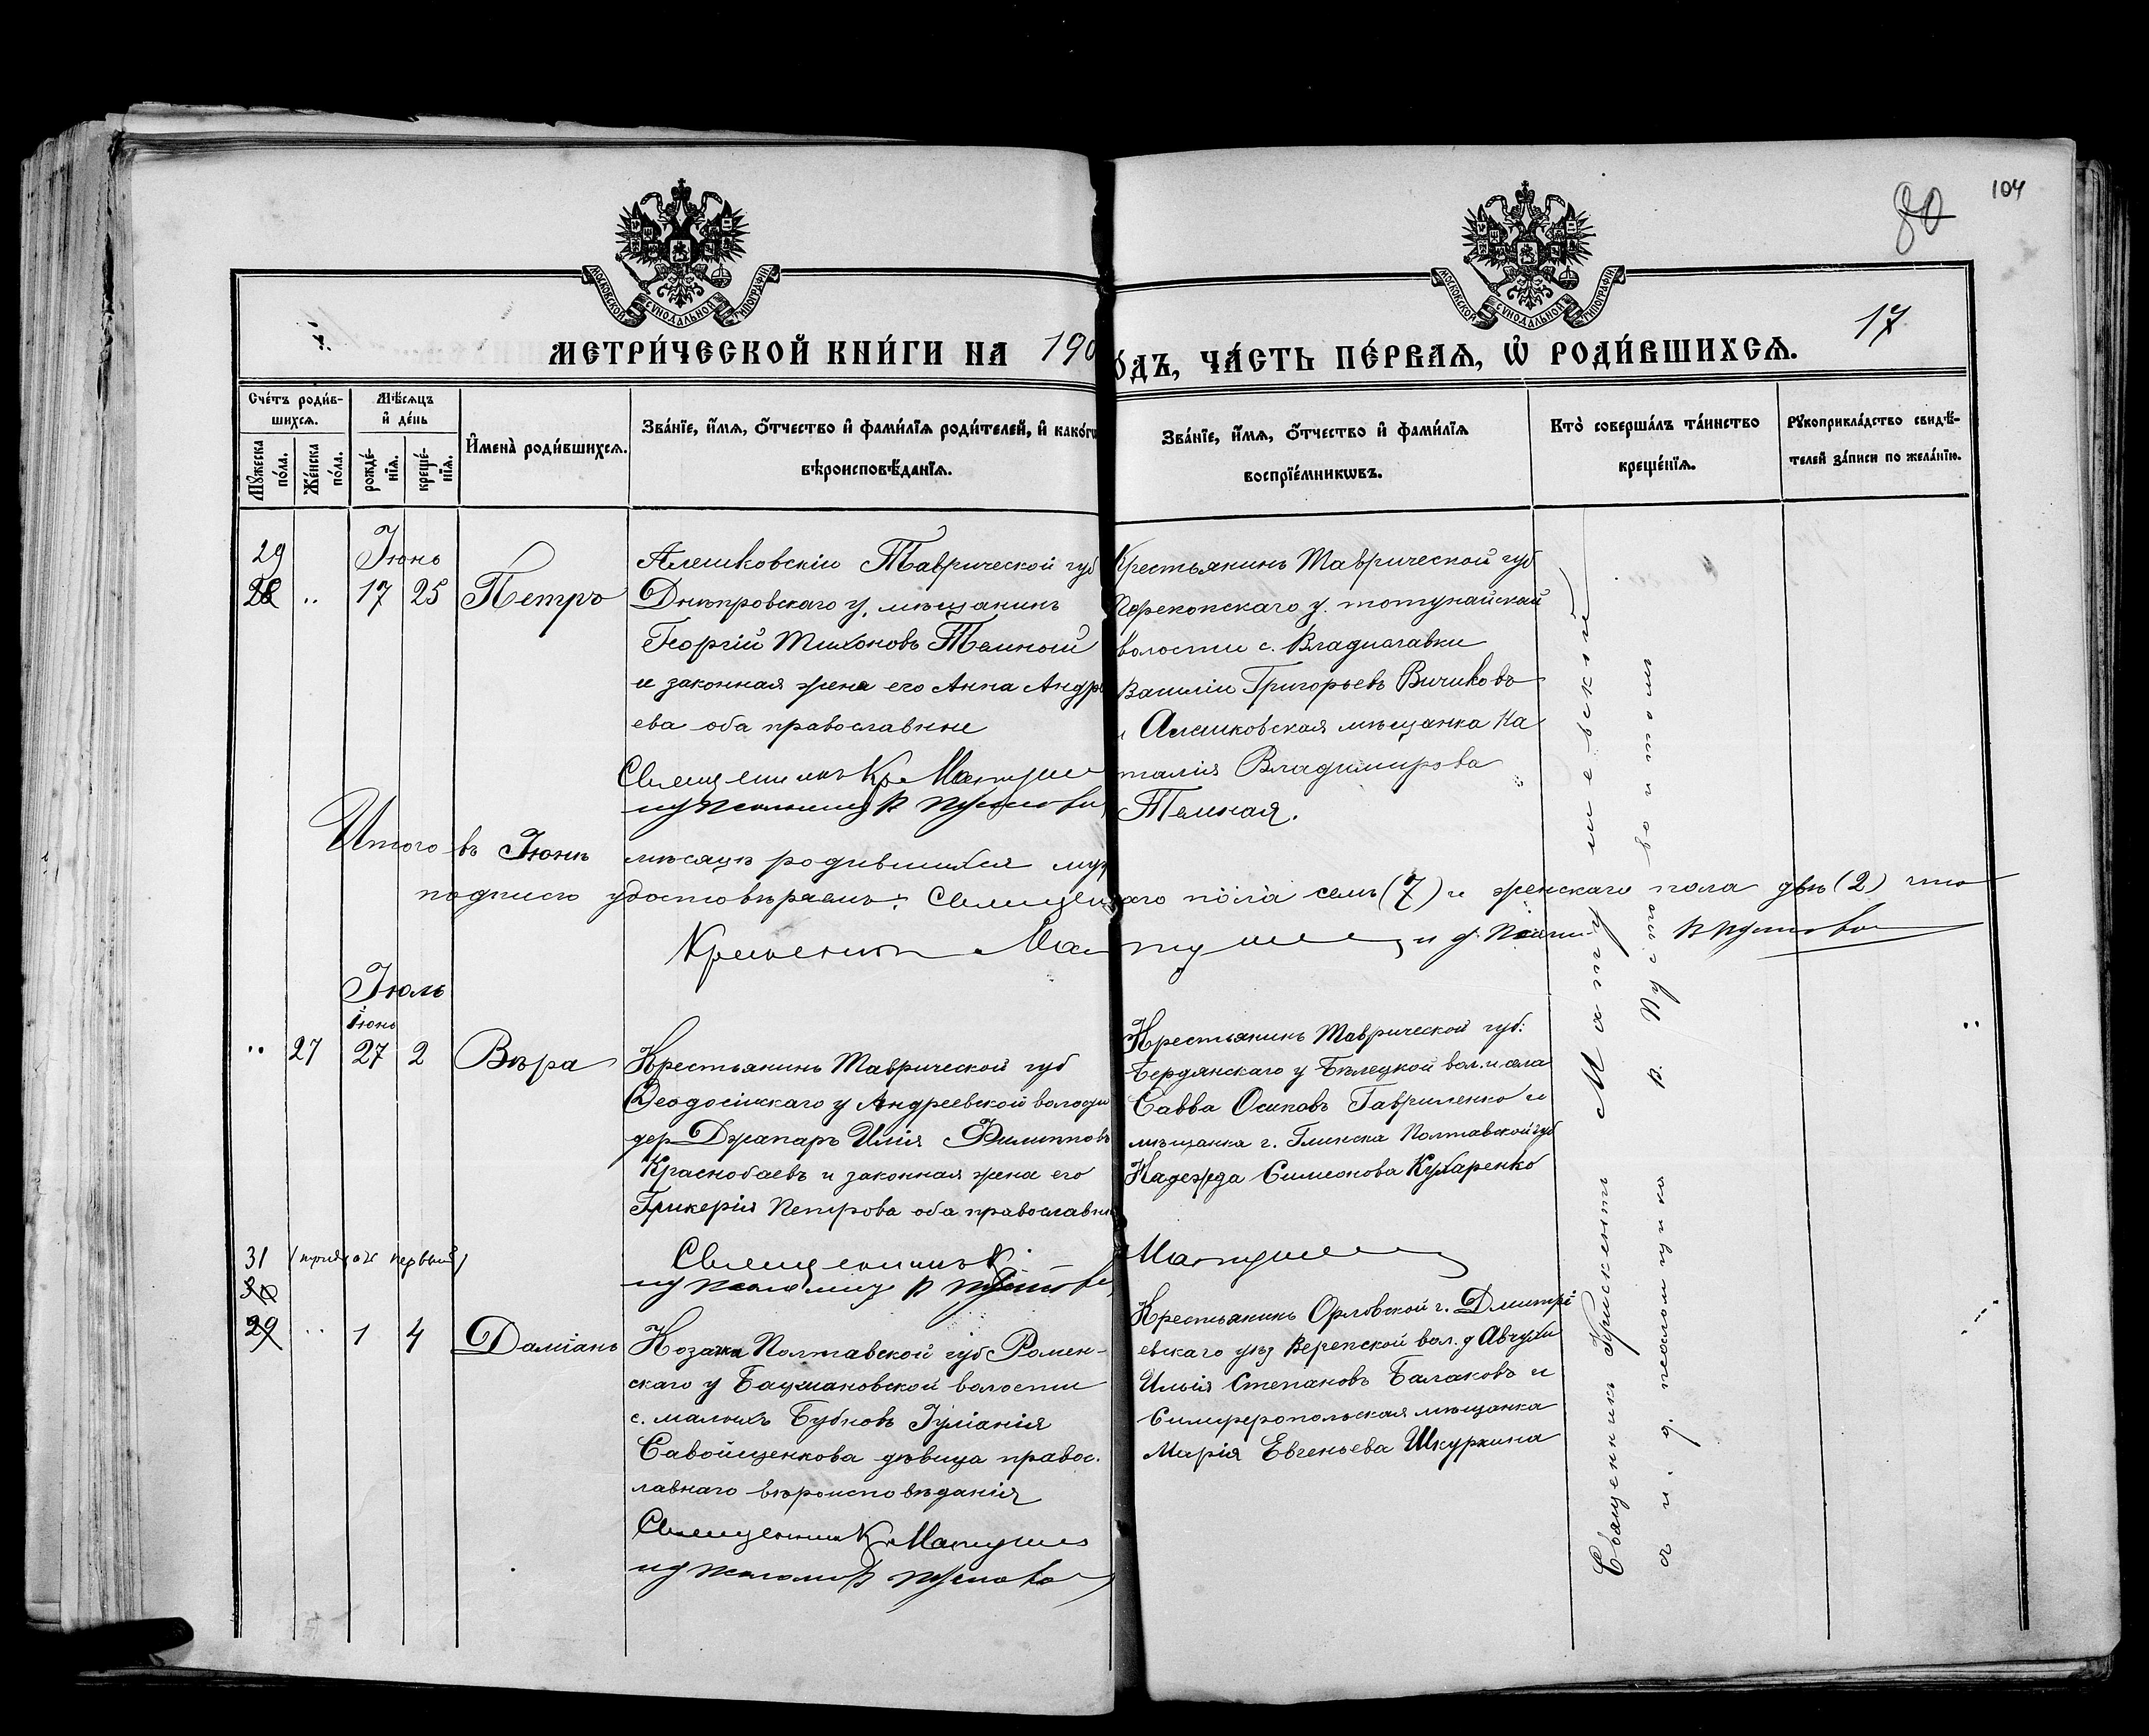 104
80
17
МОСКОВСКОЙ СѴНОДАЛЬНОЙ ТИПОГРАФІИ
МОСКОВСКОЙ СѴНОДАЛЬНОЙ ТИПОГРАФІИ
МЕТРИ́ЧЕСКОЙ КНИ́ГИ НА 190
О́ДЪ, ЧА́СТЬ ПЕ́РВАѦ, Ѡ҆ РОДИ́ВШИХСѦ.
Сче́тъ роди́в-
шихсѧ.
Мꙋ́жеска по́ла.
Же́нска по́ла.
Мѣ́сѧцъ
и҆ де́нь
рожде́-
нїѧ.
креще́-
нїѧ.
И҆мена̀ роди́вшихсѧ.
Зва́нїе, и҆́мѧ, ѻ҆́тчество и҆ фами́лїѧ роди́телей, и҆ како́гѡ
вѣроисповѣ́данїѧ.
Зва́нїе, и҆́мѧ, ѻ҆́тчество и҆ фами́лїѧ
воспрїе́мникѡвъ.
Кто̀ соверша́лъ та́инство
креще́нїѧ.
Рꙋкоприкла́дство свидѣ́-
телей за́писи по жела́нїю.
29
28 .. Іюнь 17 25 Петръ
Алешковскій Таврической губ
Днѣпровскаго у. мѣщанинъ
Георгій Тихоновъ Темной
и законная жена его Анна Андре
ева оба православные
Священникъ Кр. Матуше
Крестьянинъ Таврической губ
Перекопскаго у. тотунайской
волости с. Владиславки
Василій Григорьевъ Вичиковъ
и Алешковская мѣщанка На
талія Владимирова
Темная.
Итого въ Іюнѣ мѣсяцѣ родившихся муж
аго пола семь (7) и женскаго пола двѣ (2) что
подписью удостовѣряемъ: Священ
Крискентъ Матуше
Іюль
Іюнь
.. 27 27 2 Вѣра
Крестьянинъ Таврической губ
Ѳеодосійскаго у Андреевской волости
дер Джапаръ Илія Филипповъ
Краснобаевъ и законная жена его
Гликерія Петрова оба православные
Священникъ К.
Матуше
Крестьянинъ Таврической губ:
Бердянскаго у Бѣлецкой вол. и села
Савва Осиповъ Гавриленко и
мѣщанка г. Глинска Полтавской губ
Надежда Симеонова Кухаренко
31 (тридцать первый)
30
29 .. 1 4 Даміанъ
Козачка Полтавской губ Ромен-
скаго у Бацмановской волости
с. малыхъ Бубновъ Іуліанія
Савойщенкова дѣвица правос.
лавнаго вѣроисповѣданія
Священникъ К. Матуше
Крестьянинъ Орловской г. Дмитрі
евскаго уѣз Верепской вол. д Авчухи
Илья Степановъ Балаковъ и
Симферопольская мѣщанка
Марія Евгеньева Шкуркина
Священникъ Крискентъ Матушевскій
а и. д. псаломщика В. Пустовойтом